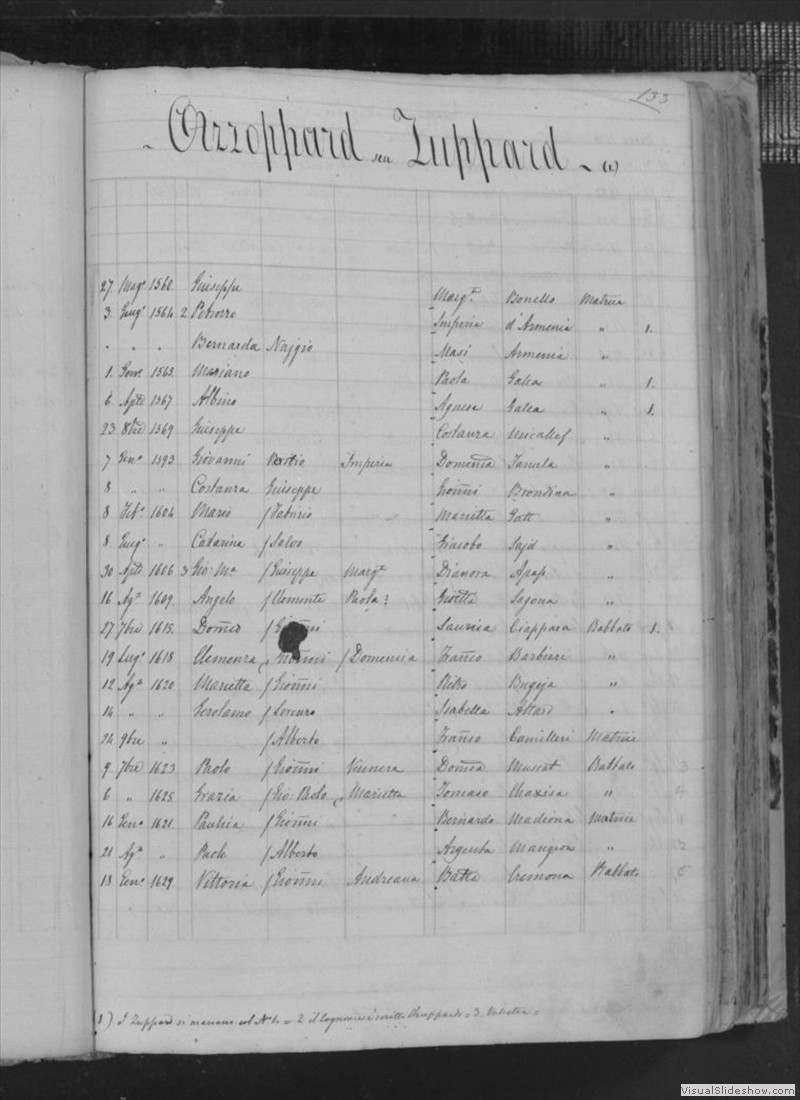 133
Azzoppard seu Zuppard - (1)
27 Magº 1560 Giuseppe Margta Bonello Matrice
3 Giugº 1564 2 Petozzo Imperia d'Armenia " 1.
" " " Bernarda Naggio Masi Armenia "
1. Genº 1563 Mariano Paola Galea " 1.
6 Aple 1567 Albino Agnesa Galea " 1.
23 8bre 1569 Giuseppe Costanza Micallef "
7 Genº 1593 Giovanni Imperia Domenica "
8 " " Costanza Giuseppe Gioñni Brondina "
8 Febº 1604 Mario f Fabrizio Marietta Gatt "
8 Giugº " Catarina f Salvo Giacobo Sajd "
30 Aple 1606 3 Gio: Mª f Giuseppe Margta Dianora Apap "
16 Agº 1609 Angelo f Clemente Paola? Gioetta Sagona "
27 7bre 1615 Domco f Laurica Ciappara Rabbato 1.
19 Lugº 1618 Clemenza f Gioñni f Domenica Franco Barbieri "
12 Agº 1620 Marietta f Gioñni Pietro Bugeja "
14 " " Gerolamo f Lorenzo Isabella Attard "
24 9bre " f Alberto Franco Camilleri Matrice
9 7bre 1623 Paolo f Gioñni Vennera Domca Muscat Rabbato 3
6 " 1625 Grazia f Gio: Paolo f Marietta Tomaso "
16 Genº 1621 Paulica f Gioñni Bernardo Madiona Matrice
21 Agº " Paolo f Alberto Argenta Mangion "
18 Genº 1629 Vittoria f Gioñni Andreana Batta Cremona Rabbato 5
(1) I Zuppard si marcano col Nº 1. = 2 il Cognome è scritto = 3.
VisualSlideshow.com